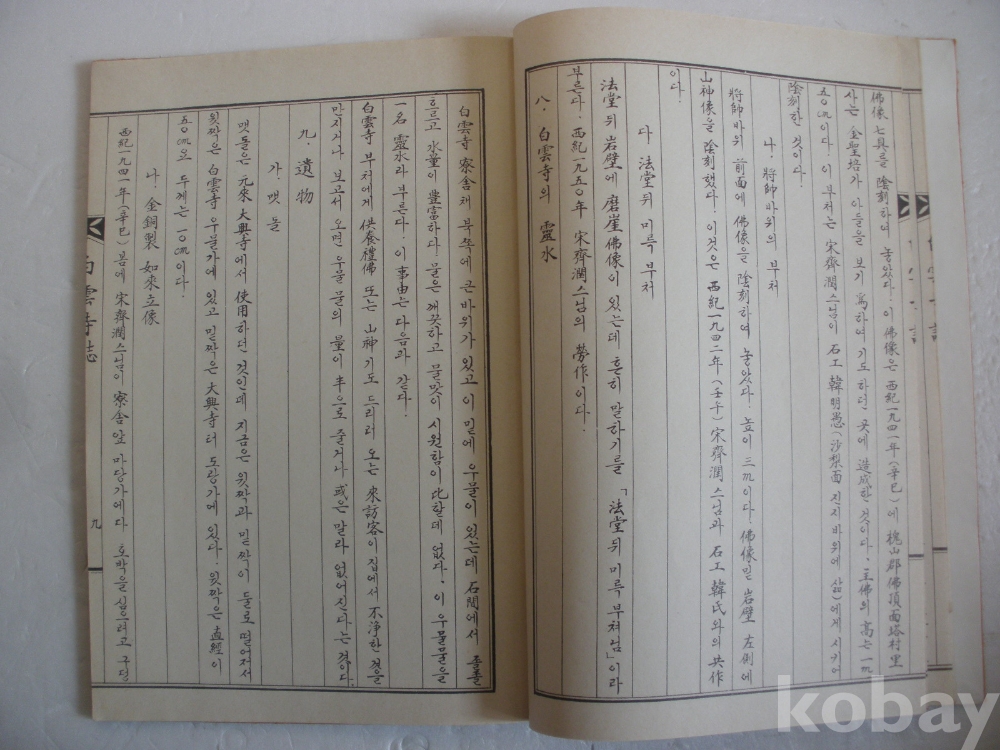 佛像七具를 陰刻하여 놓았다. 이 佛像은 西紀一九四一年(辛巳)에 槐山郡佛頂面塔村里
사는 金聖培가 아들을 보기 爲하여 기도하던 곳에 造成한 것이다. 主佛의 高는 一m
五○cm이다. 이 부처는 宋齊潤스님이 石工 韓明愚(沙梨面 진지바위에 삶)에게 시키어
陰刻한 것이다.
나. 將帥바위의 부처
將帥바위 前面에 佛像을 陰刻하여 놓았다. 높이 三m이다. 佛像밑 岩壁 左側에
山神像을 陰刻했다. 이것은 西紀一九四二年(壬午) 宋齊潤스님과 石工 韓氏와의 共作
이다.
다. 法堂뒤 미륵부처
法堂뒤 岩壁에 磨崖佛像이 있는데 흔히 말하기를 「法堂뒤 미륵부쳐님」이라
부른다. 西紀一九五○年 宋齊潤스님의 勞作이다.
八. 白雲寺의 靈水
白雲寺 寮舍채 북쪽에 큰바위가 있고 이 밑에 우물이 있는데 石間에서 졸졸
흐르고 水量이 豊富하다. 물은 깨끗하고 물맛이 시원함이 比할데 없다. 이 우물물을
一名 靈水라 부른다. 이 事由는 다음과 같다.
白雲寺 부처에게 供養禮佛 또는 山神기도 드리러 오는 來訪客이 집에서 不淨한 것을
만지거나 보고서 오면 우물물의 量이 半으로 줄거나 或은 말라 없어진다는 것이다.
九. 遺物
가. 맷돌
맷돌은 元來 大興寺에서 使用하던 것인데 지금은 윗짝과 밑짝이 둘로 떨어져서
윗짝은 白雲寺 우물가에 있고 밑짝은 大興寺터 도랑가에 있다. 윗짝은 直經이
五○cm요 두께는 一○cm이다.
나. 金銅製 如來立像
西紀一九四一年(辛巳) 봄에 宋齊潤스님이 寮舍앞 마당가에다 호박을 심으려고 구덩
白雲寺誌
九